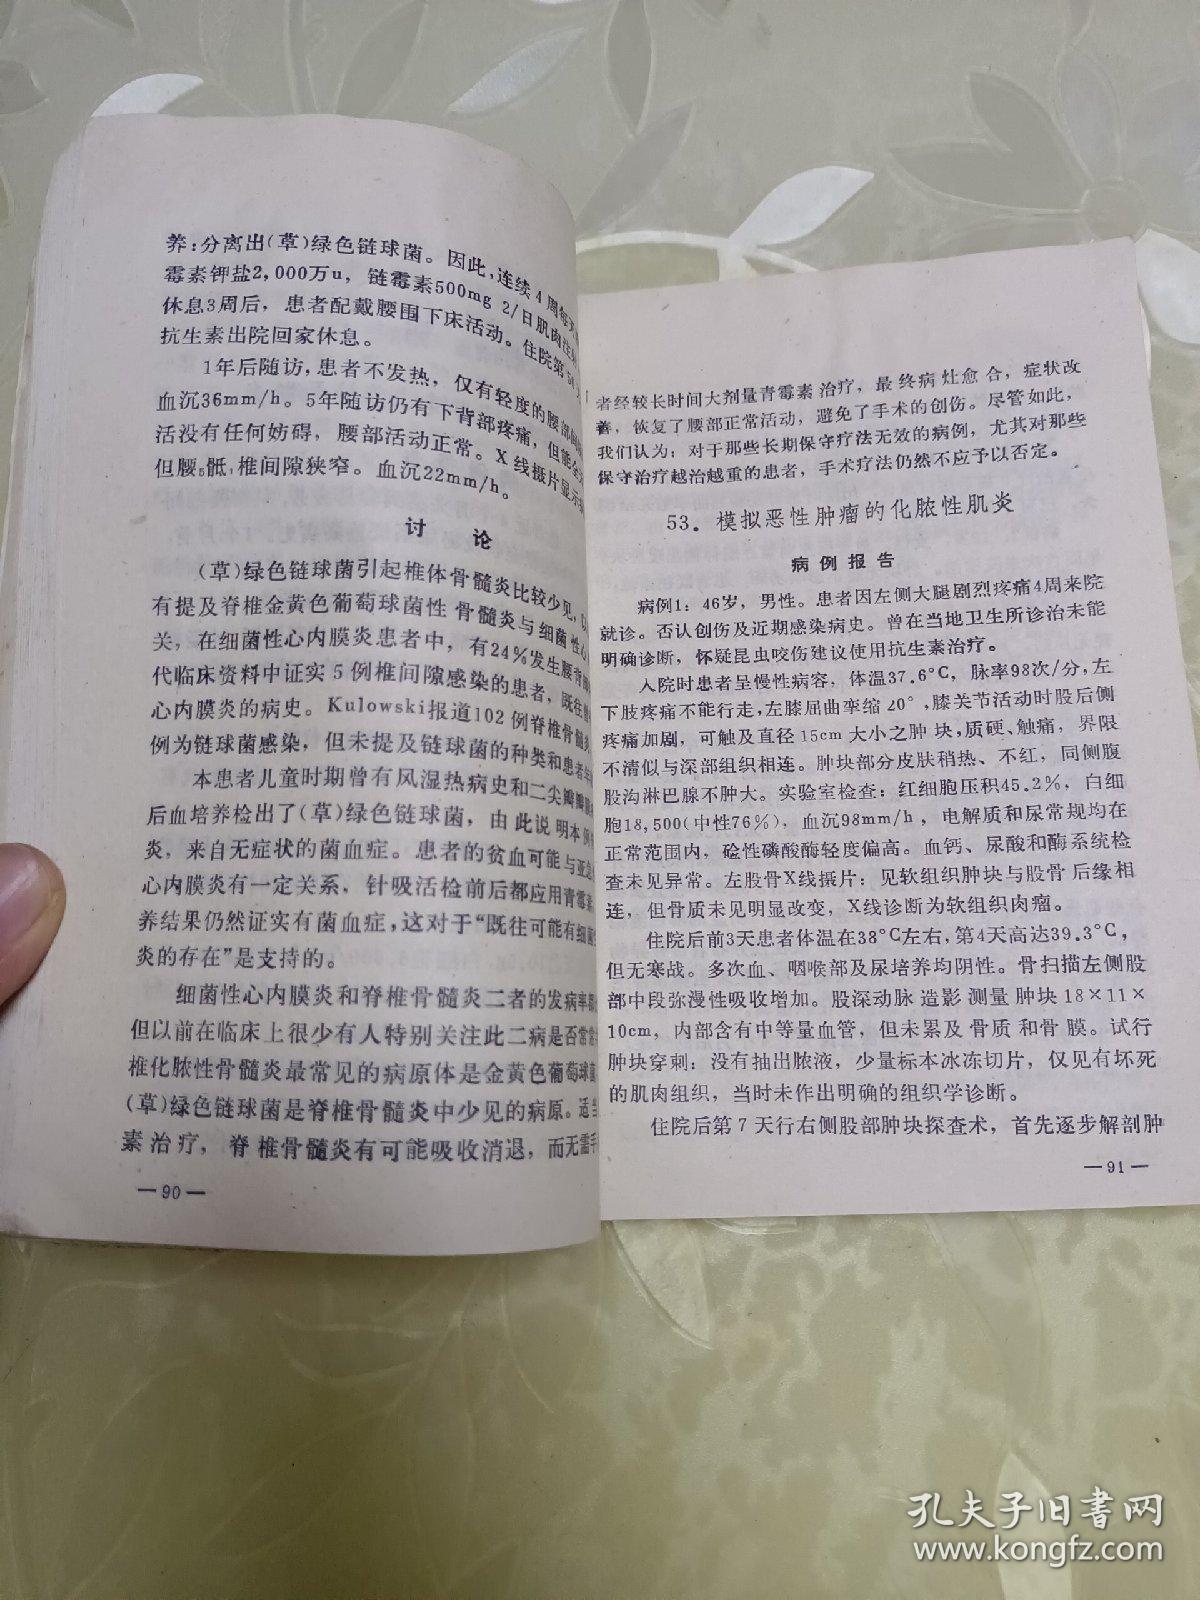 养：分离出(草)绿色链球菌。因此，连续4周每天
霉素钾盐2,000万u，链霉素500mg 2/日肌肉注
休息3周后，患者配戴腰围下床活动。住院第
抗生素出院回家休息。
1年后随访，患者不发热，仅有轻度的腰部
血沉36mm/h。5年随访仍有下背部疼痛，但能
活没有任何妨碍，腰部活动正常。X线摄片显示
但腰5骶1椎间隙狭窄。血沉22mm/h。
讨 论
(草)绿色链球菌引起椎体骨髓炎比较少见，
有提及脊椎金黄色葡萄球菌性骨髓炎与细菌性心
关，在细菌性心内膜炎患者中，有24%发生腰背
代临床资料中证实5例椎间隙感染的患者，既往
心内膜炎的病史。Kulowski报道102例脊椎骨髓炎
例为链球菌感染，但未提及链球菌的种类和患者
本患者儿童时期曾有风湿热病史和二尖瓣
后血培养检出了(草)绿色链球菌，由此说明本例
炎，来自无症状的菌血症。患者的贫血可能与亚急
心内膜炎有一定关系，针吸活检前后都应用青霉素
养结果仍然证实有菌血症，这对于“既往可能有细菌
炎的存在”是支持的。
细菌性心内膜炎和脊椎骨髓炎二者的发病率
但以前在临床上很少有人特别关注此二病是否常常
椎化脓性骨髓炎最常见的病原体是金黄色葡萄球菌
(草)绿色链球菌是脊椎骨髓炎中少见的病原。适当
素治疗，脊椎骨髓炎有可能吸收消退，而无需手
—90—
者经较长时间大剂量青霉素治疗，最终病灶愈合，症状改
善，恢复了腰部正常活动，避免了手术的创伤。尽管如此，
我们认为：对于那些长期保守疗法无效的病例，尤其对那些
保守治疗越治越重的患者，手术疗法仍然不应予以否定。
53．模拟恶性肿瘤的化脓性肌炎
病例报告
病例1：46岁，男性。患者因左侧大腿剧烈疼痛4周来院
就诊。否认创伤及近期感染病史。曾在当地卫生所诊治未能
明确诊断，怀疑昆虫咬伤建议使用抗生素治疗。
入院时患者呈慢性病容，体温37.6°C，脉率98次/分，左
下肢疼痛不能行走，左膝屈曲挛缩20°，膝关节活动时股后侧
疼痛加剧，可触及直径15cm大小之肿块，质硬、触痛，界限
不清似与深部组织相连。肿块部分皮肤稍热、不红，同侧腹
股沟淋巴腺不肿大。实验室检查：红细胞压积45.2%，白细
胞18,500(中性76%)，血沉98mm/h，电解质和尿常规均在
正常范围内，硷性磷酸酶轻度偏高。血钙、尿酸和酶系统检
查未见异常。左股骨X线摄片：见软组织肿块与股骨后缘相
连，但骨质未见明显改变，X线诊断为软组织肉瘤。
住院后前3天患者体温在38°C左右，第4天高达39.3°C，
但无寒战。多次血、咽喉部及尿培养均阴性。骨扫描左侧股
部中段弥漫性吸收增加。股深动脉造影测量肿块18×11×
10cm，内部含有中等量血管，但未累及骨质和骨膜。试行
肿块穿刺：没有抽出脓液，少量标本冰冻切片，仅见有坏死
的肌肉组织，当时未作出明确的组织学诊断。
住院后第7天行右侧股部肿块探查术，首先逐步解剖肿
—91—
孔夫子旧书网
www.kongfz.com